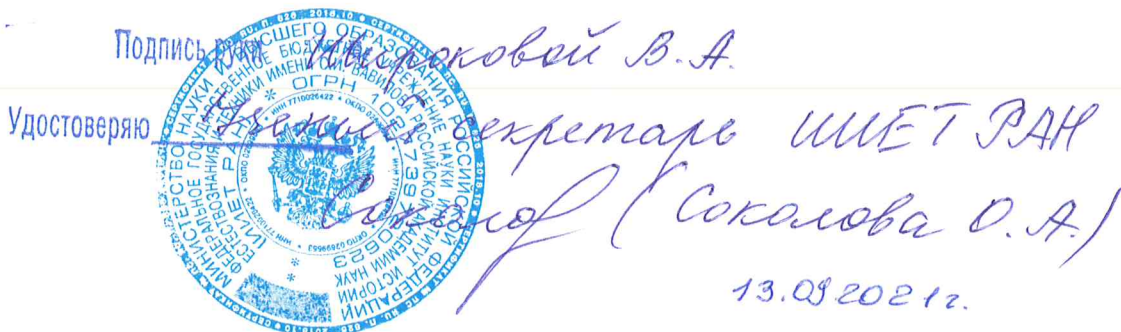 Подпись руки Широковой В.А.
Удостоверяю Ученый секретарь ИИЕТ РАН
(Соколова О.А.)
13.09.2021г.
МИНИСТЕРСТВО НАУКИ И ВЫСШЕГО ОБРАЗОВАНИЯ РОССИЙСКОЙ ФЕДЕРАЦИИ
ФЕДЕРАЛЬНОЕ ГОСУДАРСТВЕННОЕ БЮДЖЕТНОЕ УЧРЕЖДЕНИЕ НАУКИ ИНСТИТУТ ИСТОРИИ
ЕСТЕСТВОЗНАНИЯ И ТЕХНИКИ ИМЕНИ С.И. ВАВИЛОВА РОССИЙСКОЙ АКАДЕМИИ НАУК
ИИЕТ РАН * ОГРН